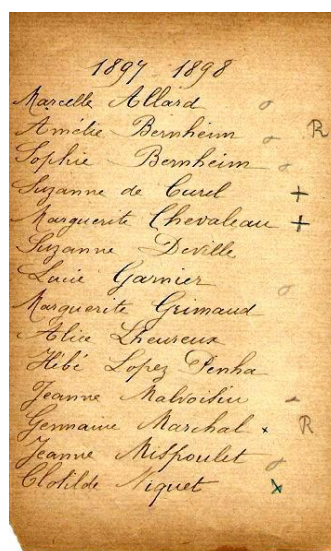 1897 - 1898
Marcelle Allard o
Amélie Bernheim o R
Sophie Bernheim o
Suzanne de Curel +
Marguerite Chevaleau +
Suzanne Deville
Lucie Garnier o
Marguerite Grimaud
Alice Lheureux
Hébé Lopez Penha
Jeanne Malvoisin
Germaine Marchal x R
Jeanne Mispoulet o
Clotilde Niquet x